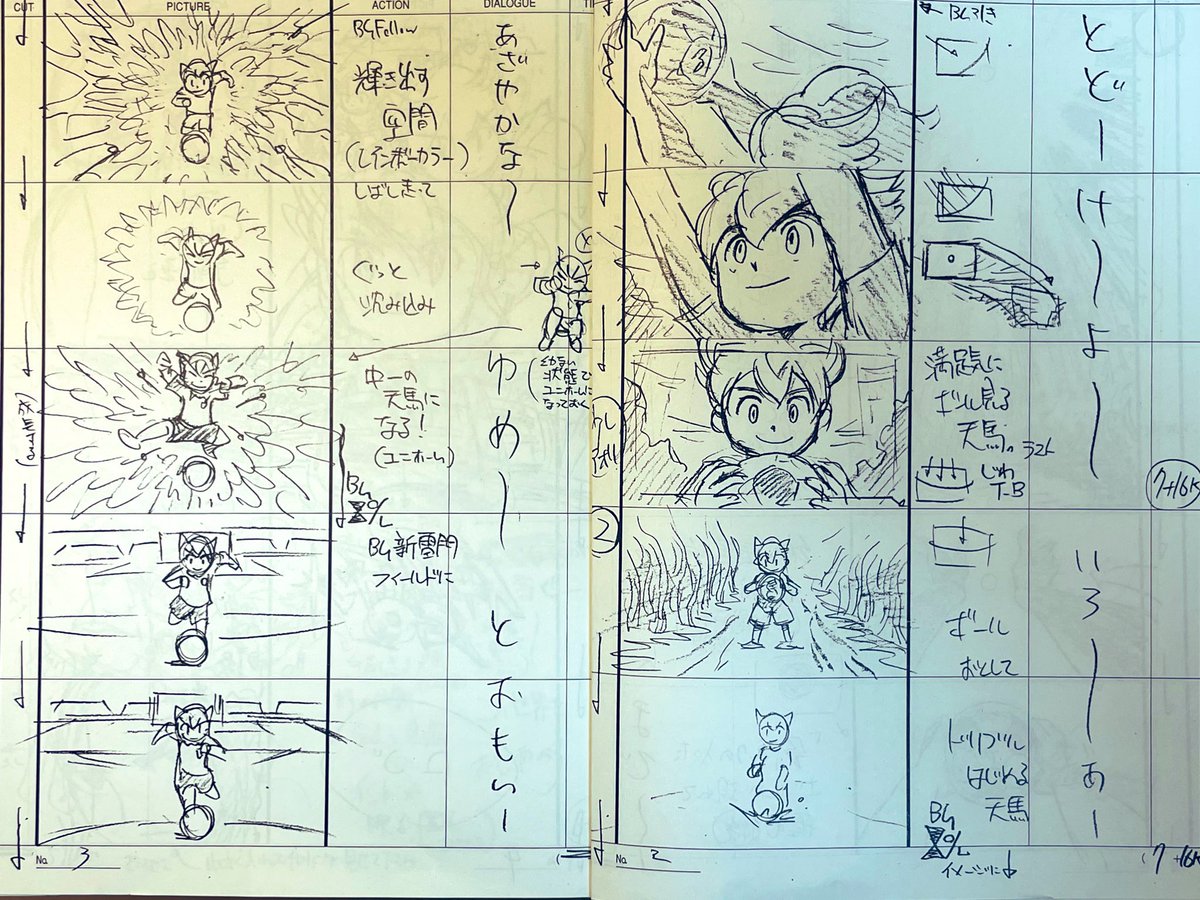 CUT PICTURE ACTION DIALOGUE
BG Follow
輝き出す
空間
(レインボーカラー)
しばし走って
ぐっと
沈み込み
中一の
天馬に
なる!
(ユニホーム)
BG
O/L
BG新雲門
フィールドに
あざやかな〜
ゆめー
とおもいー
状態で
ユニホームに
なっておく
No. 3
BG引き
満足気に
ボール見る
天馬。ラスト
じわ
T.B
ボール
おとして
ドリブル
はじめる
天馬
BG
O/L
イメージに
とどー
けーよー
いろーあー
7+16K
2
No. 2
(7+16K